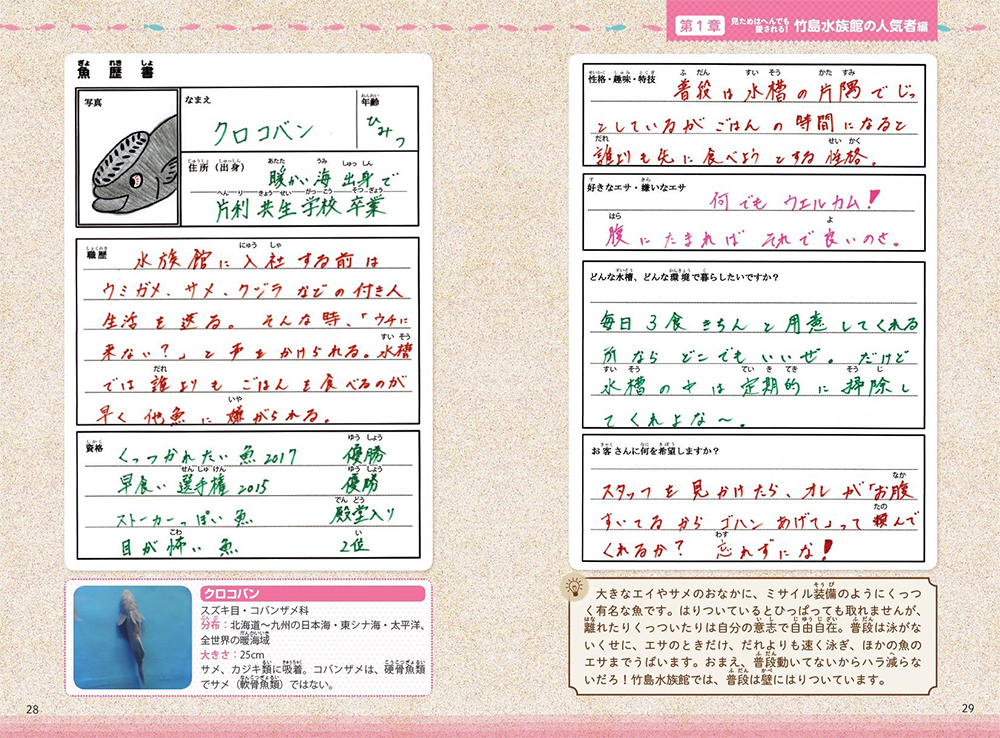 第1章 見ためはへんでも愛される! 竹島水族館の人気者編
魚歴書
写真
なまえ
クロコバン
年齢
ひみつ
住所(出身)
暖かい海出身で
片利共生学校卒業
職歴
水族館に入社する前は
ウミガメ、サメ、クジラなどの付き人
生活を送る。そんな時、「ウチに
来ない?」と声をかけられる。水槽
では誰よりもごはんを食べるのが
早く他魚に嫌がられる。
資格
くっつかれたい魚2017 優勝
早食い選手権2015 優勝
ストーカーっぽい魚 殿堂入り
目が怖い魚 2位
クロコバン
スズキ目・コバンザメ科
分布:北海道〜九州の日本海・東シナ海・太平洋、
全世界の暖海域
大きさ:25cm
サメ、カジキ類に吸着。コバンザメは、硬骨魚類
でサメ(軟骨魚類)ではない。
28
性格・趣味・特技
普段は水槽の片隅でじっ
としているがごはんの時間になると
誰よりも先に食べようとする性格。
好きなエサ・嫌いなエサ
何でもウエルカム!
腹にたまればそれで良いのさ。
どんな水槽、どんな環境で暮らしたいですか?
毎日3食きちんと用意してくれる
所ならどこでもいいぜ。だけど
水槽の中は定期的に掃除し
てくれよな〜。
お客さんに何を希望しますか?
スタッフを見かけたら、オレが「お腹
すいてるからゴハンあげて」って頼んで
くれるか? 忘れずにな!
大きなエイやサメのおなかに、ミサイル装備のようにくっつ
く有名な魚です。はりついているとひっぱっても取れませんが、
離れたりくっついたりは自分の意志で自由自在。普段は泳が
ないくせに、エサのときだけ、だれよりも速く泳ぎ、ほかの魚の
エサまでうばいます。おまえ、普段動いてないからハラ減らな
いだろ!竹島水族館では、普段は壁にはりついています。
29